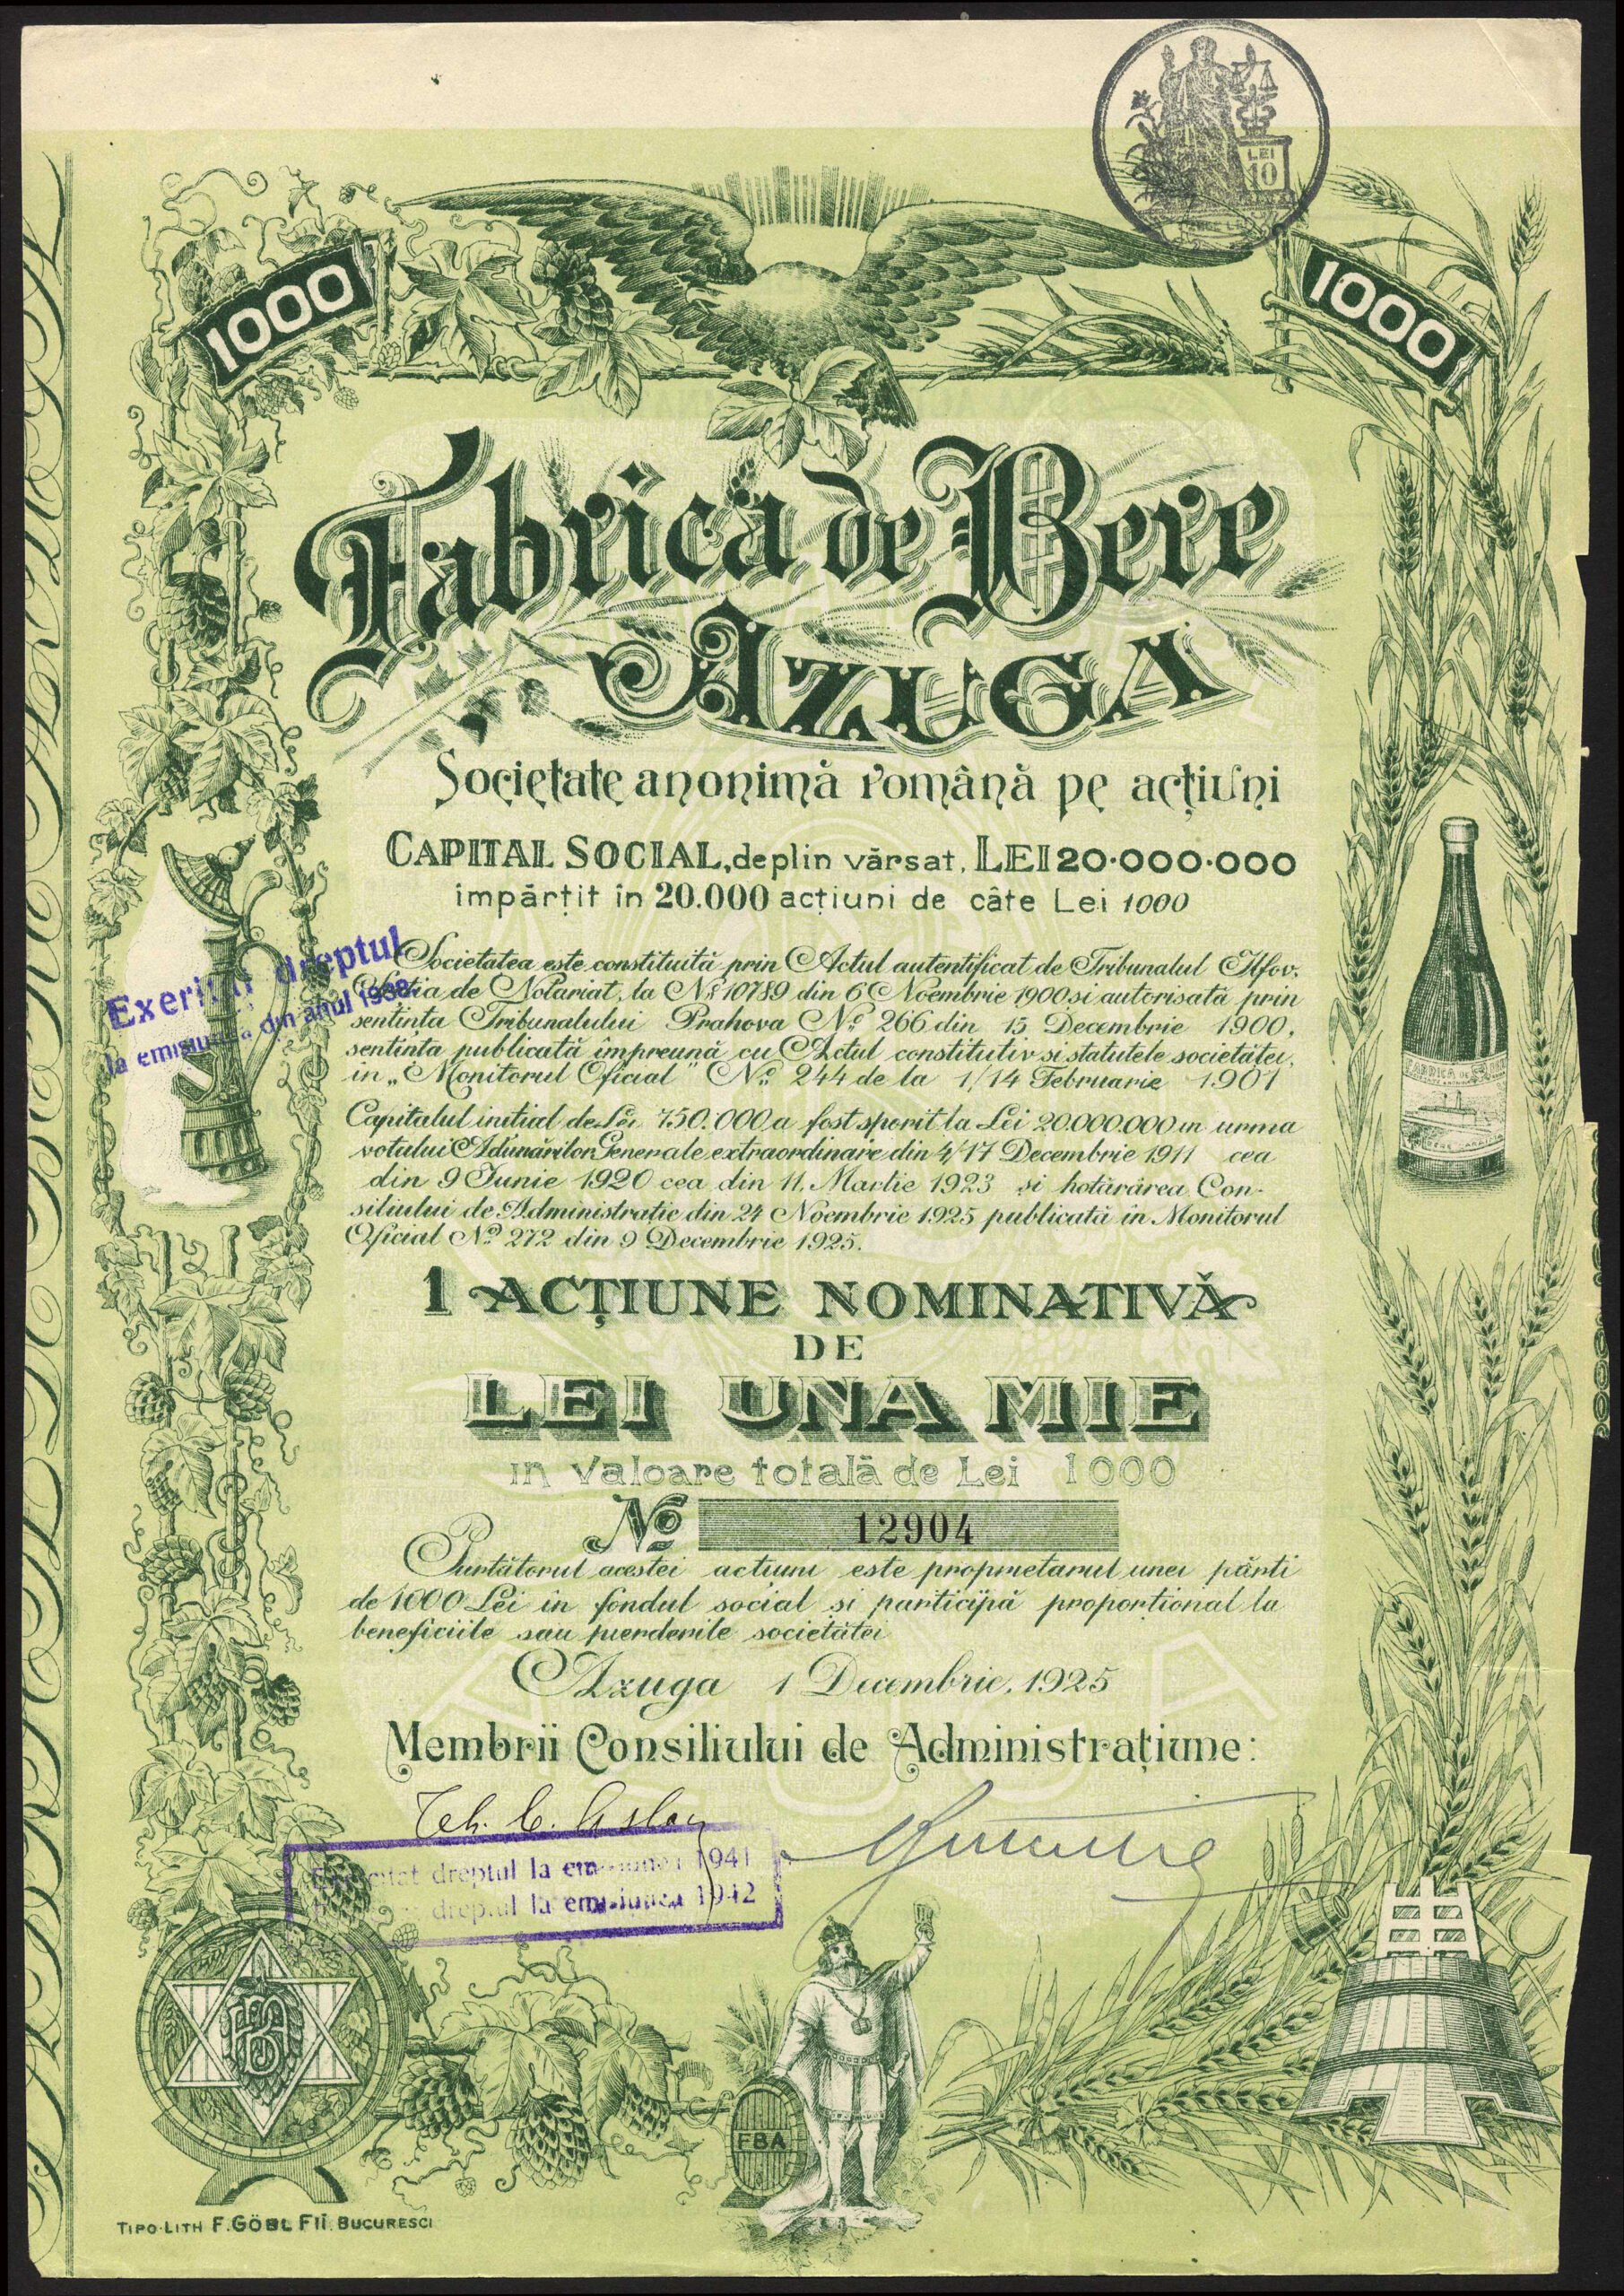 LEI
10
1000
1000
Fabrica de Bere
AZUGA
Societate anonimă română pe acțiuni
CAPITAL SOCIAL, deplin vărsat, LEI 20.000.000
împărțit în 20.000 acțiuni de câte Lei 1000
Societatea este constituită prin Actul autentificat de Tribunalul Ilfov,
Secția de Notariat, la № 10789 din 6 Noembrie 1900 si autorisată prin
sentinta Tribunalului Prahova № 266 din 15 Decembrie 1900,
sentinta publicată împreună cu Actul constitutiv si statutele societătei,
in „Monitorul Oficial" № 244 de la 1/14 Februarie 1901
Capitalul initial de Lei 750.000 a fost sporit la Lei 20.000.000 in urma
votului Adunărilor Generale extraordinare din 4/17 Decembrie 1911 cea
din 9 Iunie 1920 cea din 11. Martie 1923 și hotărârea Con-
siliului de Administratie din 24 Noembrie 1925 publicată in Monitorul
Oficial № 272 din 9 Decembrie 1925.
Exercitat dreptul
la emisiunea din anul 1938
FABRICA DE
1 ACȚIUNE NOMINATIVĂ
DE
LEI UNA MIE
in valoare totală de Lei 1000
№ 12904
Purtătorul acestei acțiuni este proprietarul unei părti
de 1000 Lei in fondul social si participă proportional la
beneficiile sau pierderile societătei
Azuga 1 Decembrie, 1925
Membrii Consiliului de Administrațiune:
Exercitat dreptul la emisiunea 1941
dreptul la emisiunea 1942
FBA
FBA
TIPO-LITH F. GÖBL FII. BUCURESCI